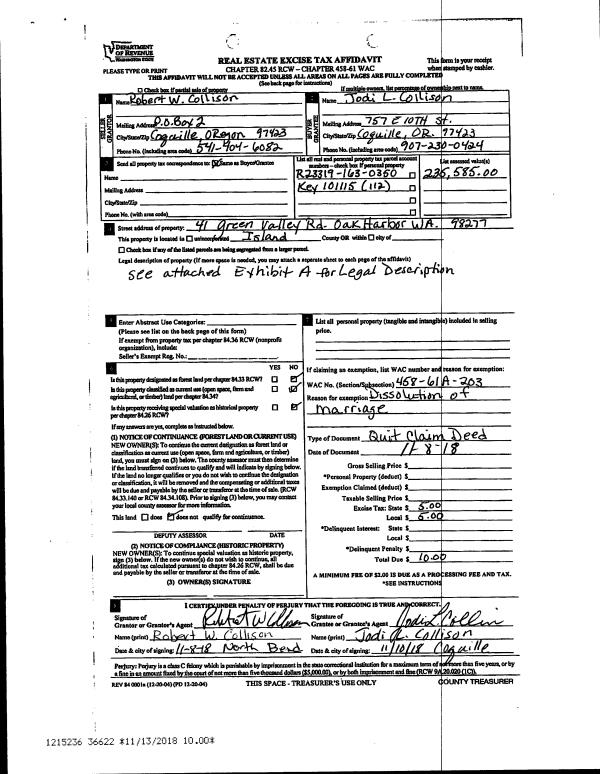 DEPARTMENT
OF REVENUE
WASHINGTON STATE
REAL ESTATE EXCISE TAX AFFIDAVIT
CHAPTER 82.45 RCW – CHAPTER 458-61 WAC
This form is your receipt
when stamped by cashier.
PLEASE TYPE OR PRINT
THIS AFFIDAVIT WILL NOT BE ACCEPTED UNLESS ALL AREAS ON ALL PAGES ARE FULLY COMPLETED
(See back page for instructions)
Check box if partial sale of property
If multiple owners, list percentage of ownership next to name.
SELLER GRANTOR
Name Robert W. Collison
Mailing Address P.O. Box 2
City/State/Zip Coquille, Oregon 97423
Phone No. (including area code) 541-404-6082
BUYER GRANTEE
Name Jodi L. Collison
Mailing Address 757 E 10TH St.
City/State/Zip Coquille, OR. 97423
Phone No. (including area code) 907-230-0424
Send all property tax correspondence to: Same as Buyer/Grantee
Name
Mailing Address
City/State/Zip
Phone No. (with area code)
List all real and personal property tax parcel account
numbers – check box if personal property
R23319-163-0350
Key 101115 (112)
List assessed value(s)
236,585.00
Street address of property: 41 Green Valley Rd. Oak Harbor WA. 98277
This property is located in unincorporated Island County OR within city of
Check box if any of the listed parcels are being segregated from a larger parcel.
Legal description of property (if more space is needed, you may attach a separate sheet to each page of the affidavit)
See attached Exhibit A for Legal Description
Enter Abstract Use Categories:
(Please see list on the back page of this form)
If exempt from property tax per chapter 84.36 RCW (nonprofit
organization), include:
Seller's Exempt Reg. No.:
YES NO
Is this property designated as forest land per chapter 84.33 RCW?
Is this property classified as current use (open space, farm and
agricultural, or timber) land per chapter 84.34?
Is this property receiving special valuation as historical property
per chapter 84.26 RCW?
If any answers are yes, complete as instructed below.
(1) NOTICE OF CONTINUANCE (FOREST LAND OR CURRENT USE)
NEW OWNER(S): To continue the current designation as forest land or
classification as current use (open space, farm and agriculture, or timber)
land, you must sign on (3) below. The county assessor must then determine
if the land transferred continues to qualify and will indicate by signing below.
If the land no longer qualifies or you do not wish to continue the designation
or classification, it will be removed and the compensating or additional taxes
will be due and payable by the seller or transferor at the time of sale. (RCW
84.33.140 or RCW 84.34.108). Prior to signing (3) below, you may contact
your local county assessor for more information.
This land does does not qualify for continuance.
DEPUTY ASSESSOR DATE
(2) NOTICE OF COMPLIANCE (HISTORIC PROPERTY)
NEW OWNER(S): To continue special valuation as historic property,
sign (3) below. If the new owner(s) do not wish to continue, all
additional tax calculated pursuant to chapter 84.26 RCW, shall be due
and payable by the seller or transferor at the time of sale.
(3) OWNER(S) SIGNATURE
List all personal property (tangible and intangible) included in selling
price.
If claiming an exemption, list WAC number and reason for exemption:
WAC No. (Section/Subsection) 458-61A-203
Reason for exemption Dissolution of
marriage
Type of Document Quit Claim Deed
Date of Document 11-8-18
Gross Selling Price $
*Personal Property (deduct) $
Exemption Claimed (deduct) $
Taxable Selling Price $
Excise Tax: State $ 5.00
Local $ 5.00
*Delinquent Interest: State $
Local $
*Delinquent Penalty $
Total Due $ 10.00
A MINIMUM FEE OF $2.00 IS DUE AS A PROCESSING FEE AND TAX.
*SEE INSTRUCTIONS
I CERTIFY UNDER PENALTY OF PERJURY THAT THE FOREGOING IS TRUE AND CORRECT.
Signature of
Grantor or Grantor's Agent
Name (print) Robert W. Collison
Date & city of signing: 11-8-18 North Bend
Signature of
Grantee or Grantee's Agent
Name (print) Jodi L. Collison
Date & city of signing: 11/10/18 Coquille
Perjury: Perjury is a class C felony which is punishable by imprisonment in the state correctional institution for a maximum term of not more than five years, or by
a fine in an amount fixed by the court of not more than five thousand dollars ($5,000.00), or by both imprisonment and fine (RCW 9A.20.020 (1C)).
REV 84 0001a (12-20-04) (PD 12-20-04)
THIS SPACE - TREASURER'S USE ONLY
COUNTY TREASURER
1215236 36622 *11/13/2018 10.00*